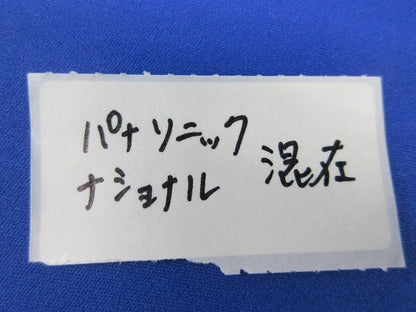 パナソニック
ナショナル 混在